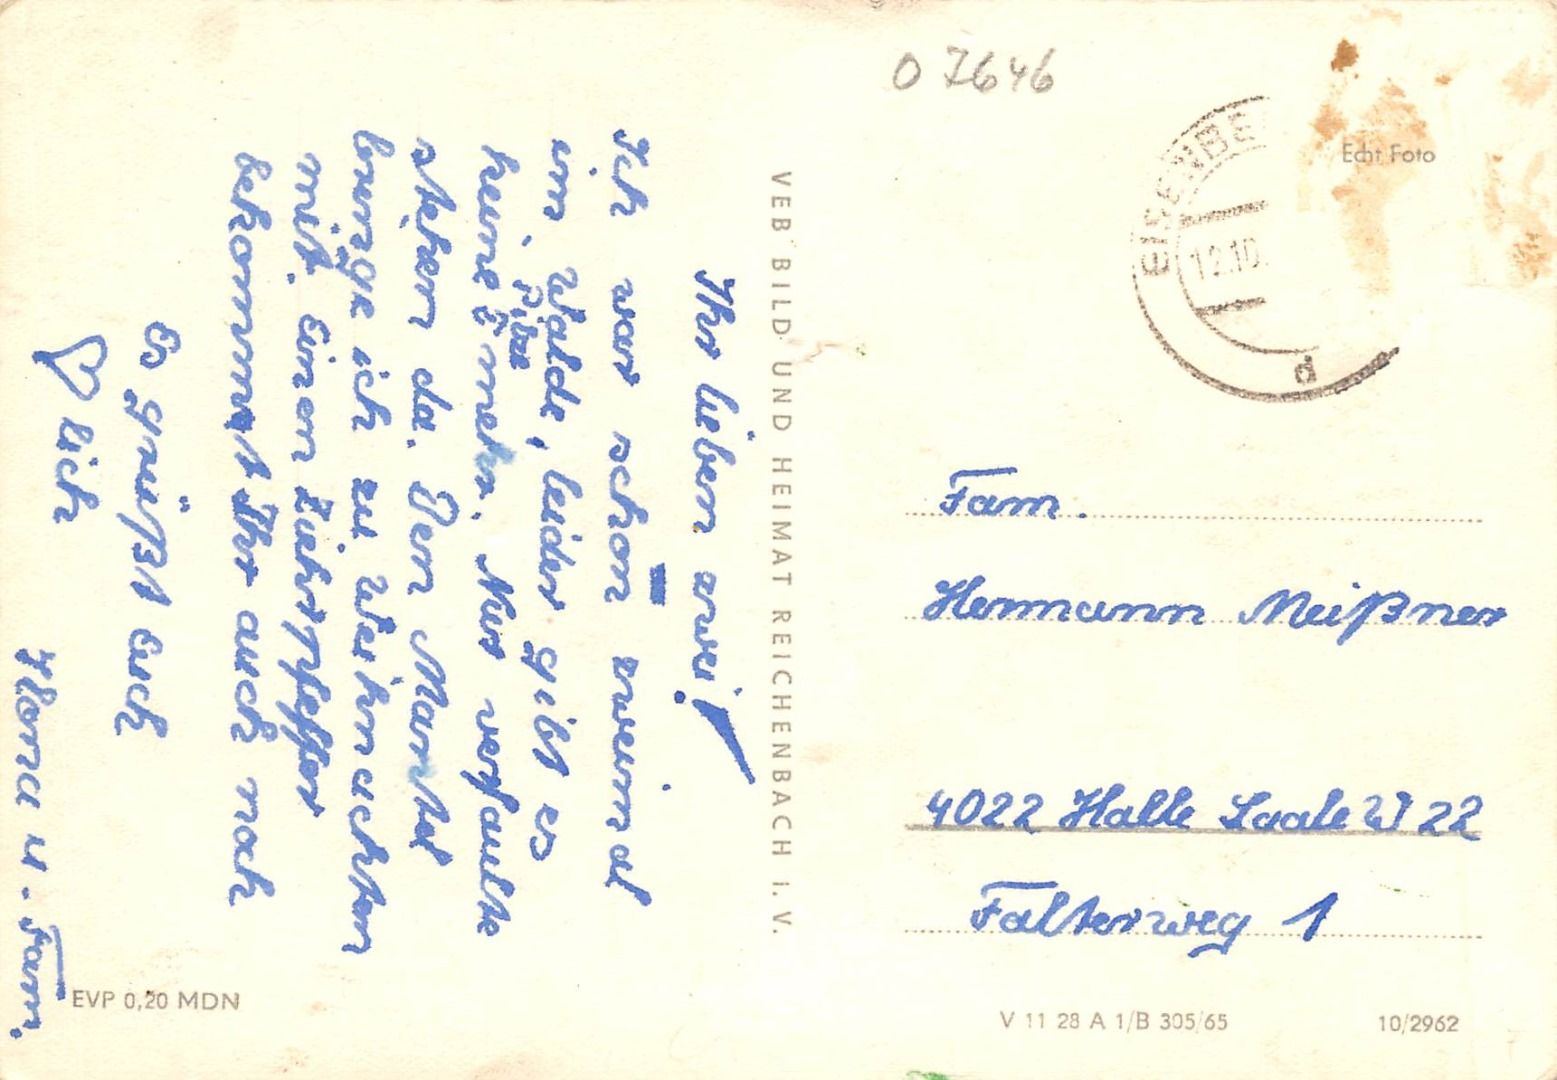 Ihr lieben zwei!
Ich war schon zweimal
im Walde, leider gibt es
keine Pilze mehr. Nur verfaulte
stehen da. Den Mantel
bringe ich zu Weihnachten
mit. Einen
bekommt Ihr auch noch
Es grüßt euch
♡lich
Ilona u. Fam.
EVP 0,20 MDN
VEB BILD UND HEIMAT REICHENBACH I. V.
0 7646
Echt Foto
EISENBE
12.10.
d
Fam.
Hermann Meißner
4022 Halle Saale W 22
Falterweg 1
V 11 28 A 1/B 305/65
10/2962